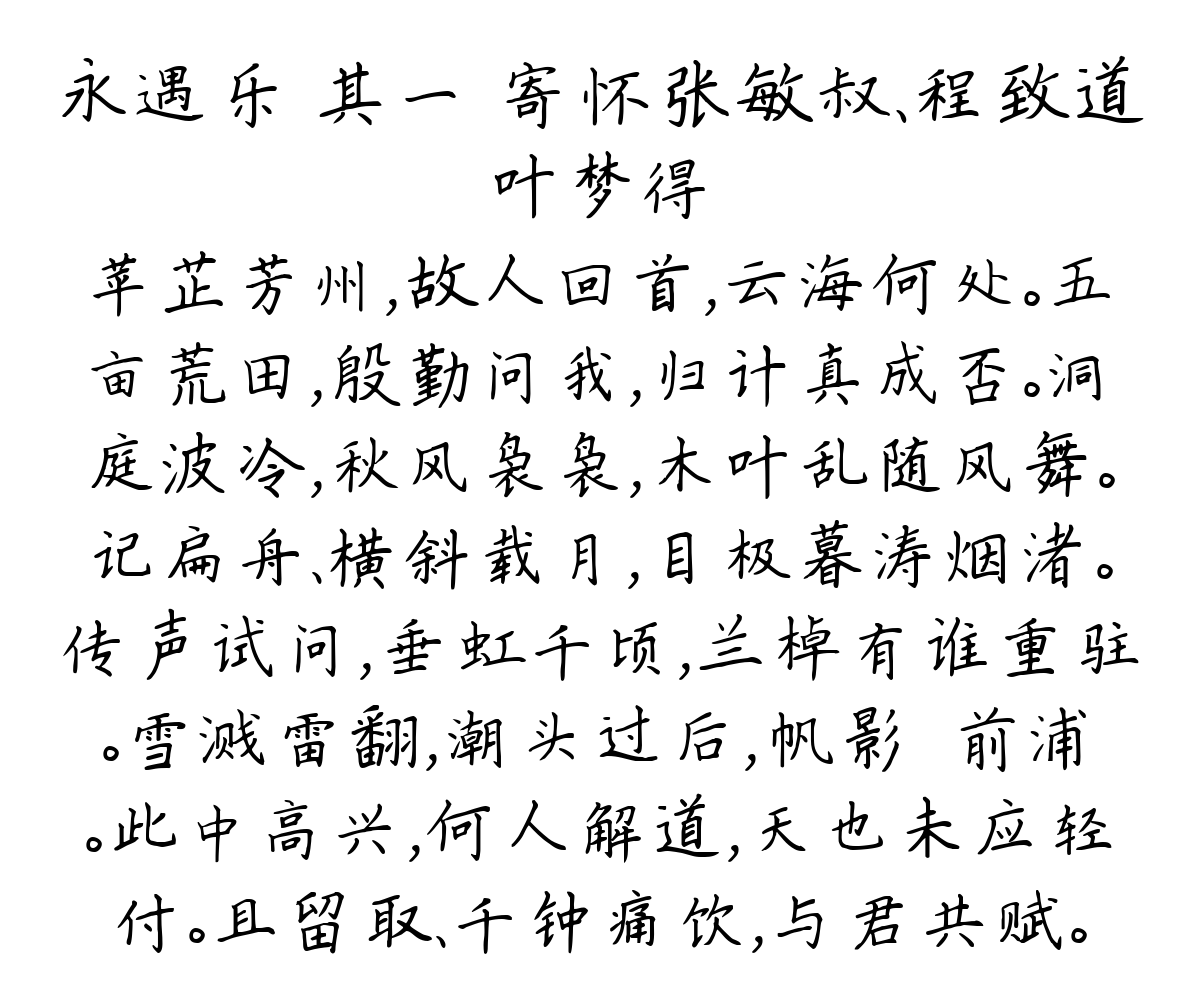 永遇乐 其一 寄怀张敏叔、程致道
叶梦得
苹芷芳州,故人回首,云海何处。五
亩荒田,殷勤问我,归计真成否。洞
庭波冷,秋风袅袅,木叶乱随风舞。
记扁舟、横斜载月,目极暮涛烟渚。
传声试问,垂虹千顷,兰棹有谁重驻
。雪溅雷翻,潮头过后,帆影 前浦
。此中高兴,何人解道,天也未应轻
付。且留取、千钟痛饮,与君共赋。